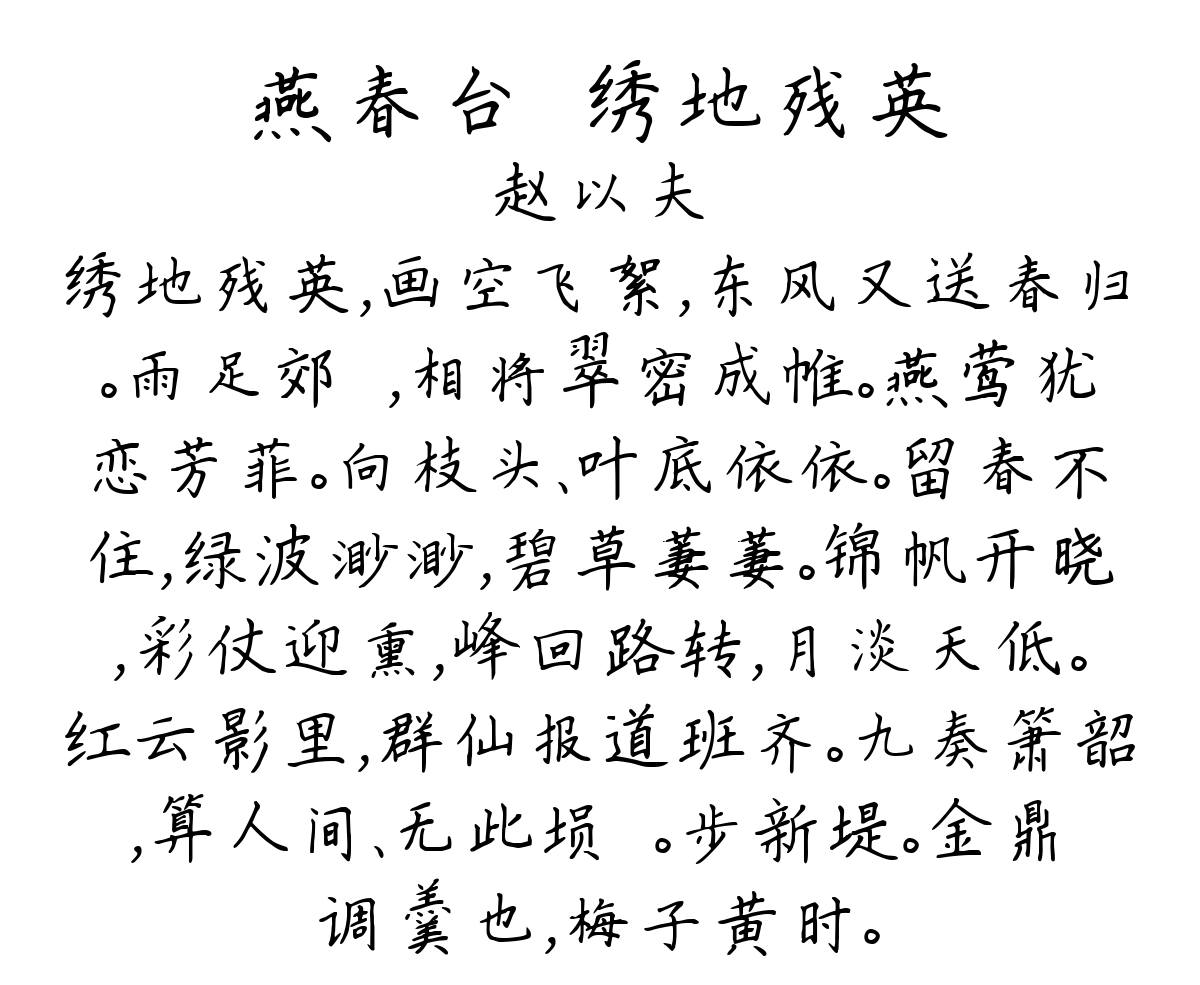 燕春台 绣地残英
赵以夫
绣地残英,画空飞絮,东风又送春归
。雨足郊 ,相将翠密成帷。燕莺犹
恋芳菲。向枝头、叶底依依。留春不
住,绿波渺渺,碧草萋萋。锦帆开晓
,彩仗迎熏,峰回路转,月淡天低。
红云影里,群仙报道班齐。九奏箫韶
,算人间、无此埙 。步新堤。金鼎
调羹也,梅子黄时。